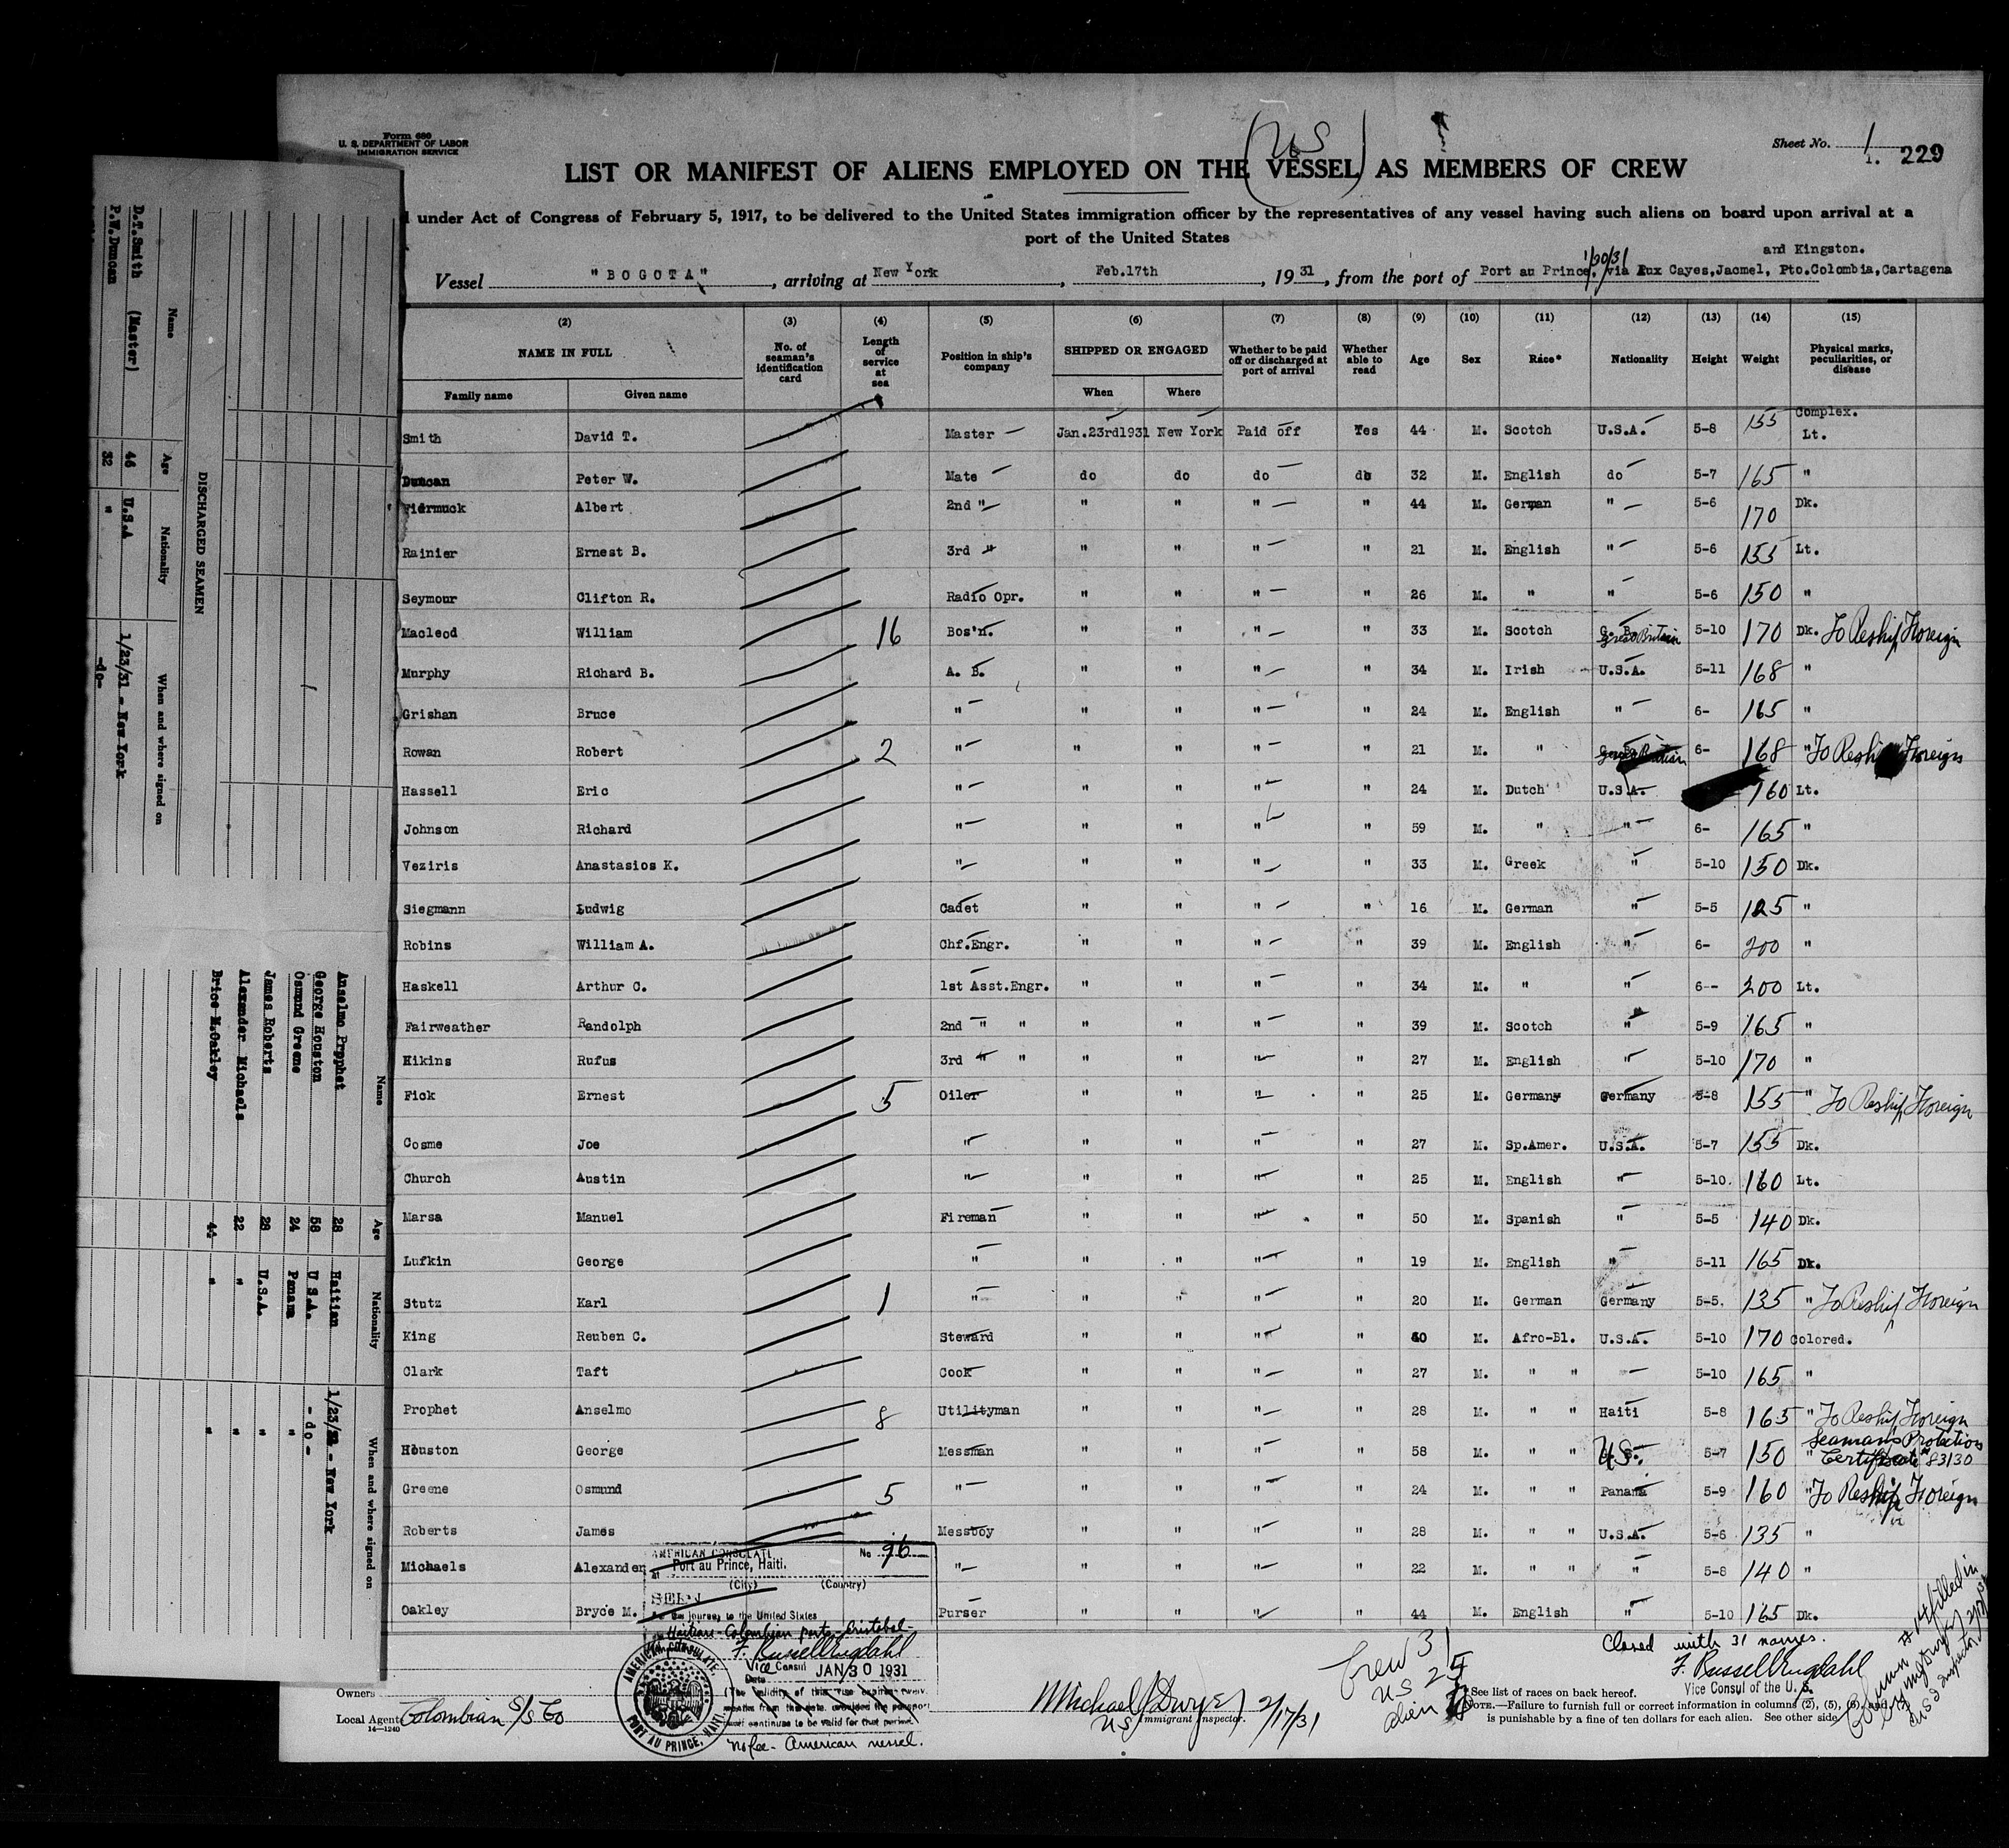 Form 680
U. S. DEPARTMENT OF LABOR
IMMIGRATION SERVICE
(US)
Sheet No. 1
1. 229
LIST OR MANIFEST OF ALIENS EMPLOYED ON THE VESSEL AS MEMBERS OF CREW
under Act of Congress of February 5, 1917, to be delivered to the United States immigration officer by the representatives of any vessel having such aliens on board upon arrival at a
port of the United States
and Kingston.
1/30/31
Vessel "BOGOTA", arriving at New York, Feb.17th, 1931, from the port of Port au Prince, via Aux Cayes,Jacmel, Pto.Colombia,Cartagena
(2) (3) (4) (5) (6) (7) (8) (9) (10) (11) (12) (13) (14) (15)
NAME IN FULL No. of seaman's identification card Length of service at sea Position in ship's company SHIPPED OR ENGAGED Whether to be paid off or discharged at port of arrival Whether able to read Age Sex Race* Nationality Height Weight Physical marks, peculiarities, or disease
Family name Given name When Where
Complex.
Smith David T. Master Jan.23rd1931 New York Paid off Yes 44 M. Scotch U.S.A. 5-8 155 Lt.
Duncan Peter W. Mate do do do do 32 M. English do 5-7 165 "
Fiermuck Albert 2nd " " " " " 44 M. German " 5-6 170 Dk.
Rainier Ernest B. 3rd " " " " " 21 M. English " 5-6 155 Lt.
Seymour Clifton R. Radio Opr. " " " " 26 M. " " 5-6 150 "
Macleod William 16 Bos'n. " " " " 33 M. Scotch G. B. Great Britain 5-10 170 Dk. To Reship Foreign
Murphy Richard B. A. B. " " " " 34 M. Irish U.S.A. 5-11 168 "
Grishan Bruce " " " " " 24 M. English " 6- 165 "
Rowan Robert 2 " " " " " 21 M. " 6- 168 " To Reship Foreign
Hassell Eric " " " " " 24 M. Dutch U.S.A. 160 Lt.
Johnson Richard " " " " " 59 M. " " 6- 165 "
Veziris Anastasios K. " " " " " 33 M. Greek " 5-10 150 Dk.
Siegmann Ludwig Cadet " " " " 16 M. German " 5-5 125 "
Robins William A. Chf.Engr. " " " " 39 M. English " 6- 200 "
Haskell Arthur C. 1st Asst.Engr. " " " " 34 M. " " 6-- 200 Lt.
Fairweather Randolph 2nd " " " " " " 39 M. Scotch " 5-9 165 "
Hikins Rufus 3rd " " " " " " 27 M. English " 5-10 170 "
Fick Ernest 5 Oiler " " " " 25 M. Germany Germany 5-8 155 " To Reship Foreign
Cosme Joe " " " " " 27 M. Sp.Amer. U.S.A. 5-7 155 Dk.
Church Austin " " " " " 25 M. English " 5-10. 160 Lt.
Marsa Manuel Fireman " " " " 50 M. Spanish " 5-5 140 Dk.
Lufkin George " " " " " 19 M. English " 5-11 165 Dk.
Stutz Karl 1 " " " " " 20 M. German Germany 5-5. 135 " To Reship Foreign
King Reuben C. Steward " " " " 40 M. Afro-Bl. U.S.A. 5-10 170 Colored.
Clark Taft Cook " " " " 27 M. " " 5-10 165 "
Prophet Anselmo 8 Utilityman " " " " 28 M. " " Haiti 5-8 165 " To Reship Foreign
Houston George Messman " " " " 58 M. " " U.S. 5-7 150 " Seaman's Protection Certificate 83130
Greene Osmund 5 " " " " " 24 M. " " Panama 5-9 160 " To Reship Foreign
Roberts James Messboy " " " " 28 M. " " U.S.A. 5-6 135 "
Michaels Alexander " " " " " 22 M. " " " 5-8 140 "
Oakley Bryce M. Purser " " " " 44 M. English " 5-10 165 Dk.
AMERICAN CONSULATE
No 96
at Port au Prince, Haiti.
(City) (Country)
SEEN
journey to the United States
Haitian-Colombian ports-Cristobal-
F. Russell Engdahl
Vice Consul
Date JAN 30 1931
No fee- American vessel.
AMERICAN CONSULATE
PORT AU PRINCE, HAITI
Closed with 31 names.
F. Russell Engdahl
Vice Consul of the U. S.
Crew 31
US 25
alien
Owners
Local Agent Colombian S/S Co
14—1240
Michael J Dwyer 2/17/31
US Immigrant Inspector.
*See list of races on back hereof.
NOTE.—Failure to furnish full or correct information in columns (2), (5), (6), and
is punishable by a fine of ten dollars for each alien. See other side.
Column #14 filled in
US Inspector
DISCHARGED SEAMEN
Name Age Nationality When and where signed on
D.T.Smith (Master) 46 U.S.A 1/23/31 - New York
P.W.Duncan 32 " -do-
Name Age Nationality When and where signed on
Anselmo Prpphet 28 Haitian 1/23/31 - New York
George Houston 58 U.S.A. - do -
Osmund Greene 24 Panam "
James Roberts 28 U.S.A. "
Alexander Michaels 22 " "
Brice M.Oakley 44 " "